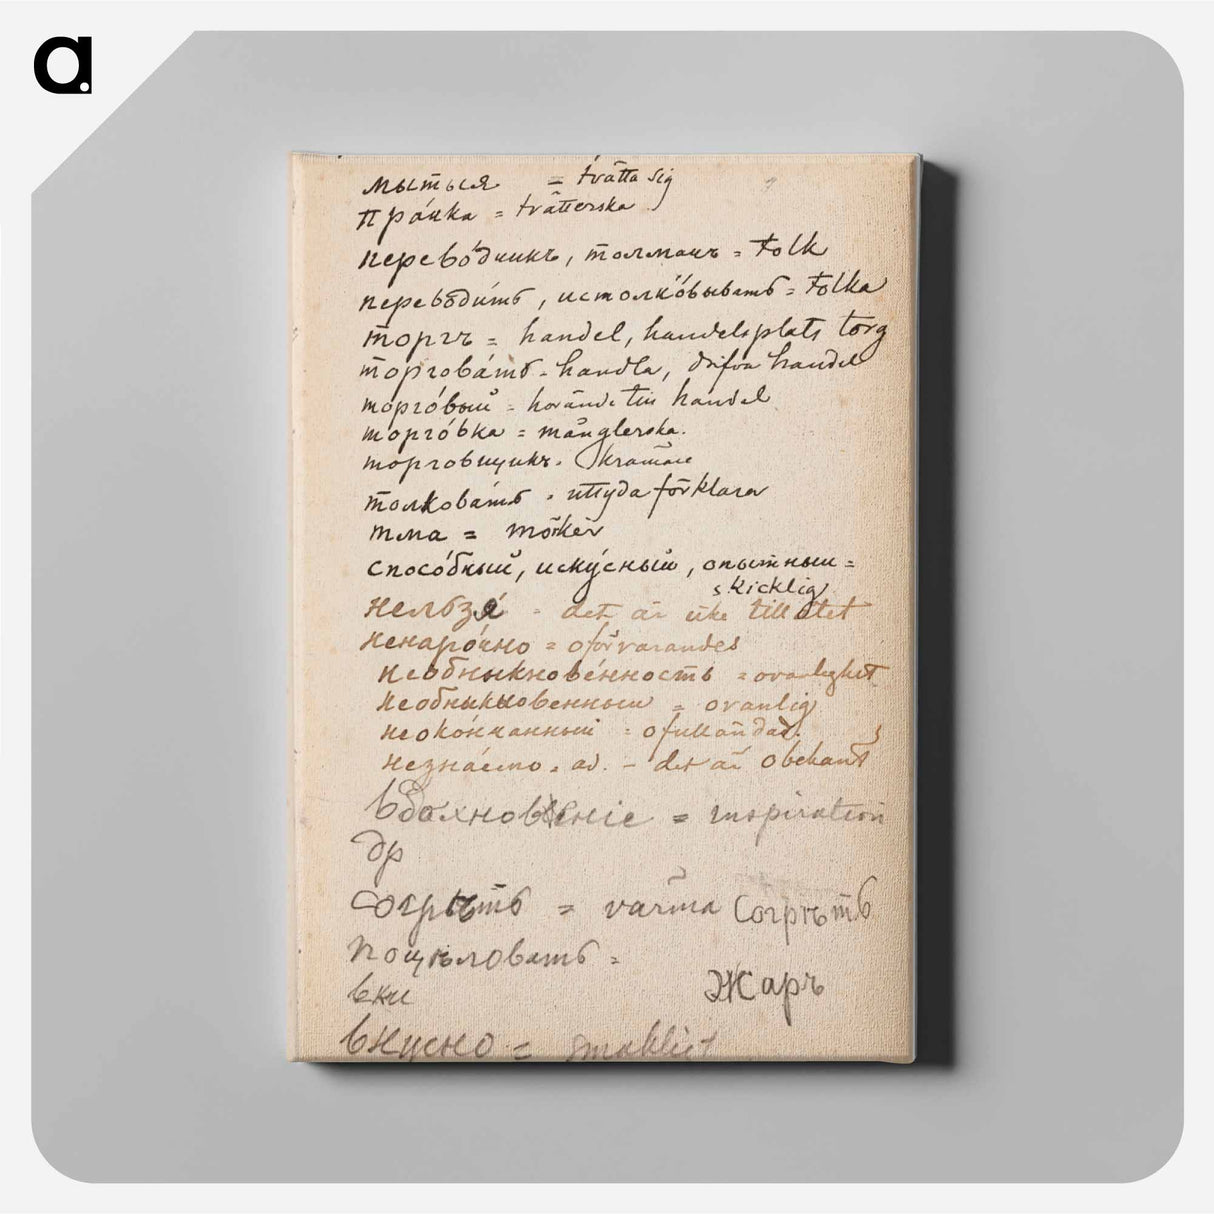 a.
мыться = tvätta sig
прачка = tvätterska
переводчикъ, толмачъ = Tolk
переводить, истолковывать = Tolka
торгъ = handel, handelsplats torg
торговать - handla, drifva handel
торговый = hörande till handel
торговка = månglerska.
торговщикъ. krämare
толковать . uttyda förklara
тма = mörker
способный, искусный, опытный =
skicklig
нельзя - det är icke tillåtet
ненарочно = oförvarandes
необыкновенность = ovanlighet
необыкновенный = ovanlig
неоконченный = ofulländad.
незнаемо . ad. - det är obekant
вдохновеніе = inspiration
др
согрѣть = värma Согрѣть
поцѣловать =
вку Жаръ
вкусно = smakligt